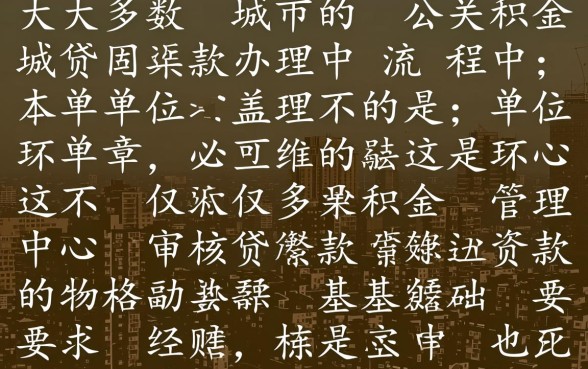 大大多数 城市的 公关积金
城贷固 款办理中 流 程中；
本单单位 盖理不的是；单位
环单章，必 维的 这是环心
这不 仅 仅多 积金 管理
中心 审核贷 款 资款
的物格副 基基 础 要
要求 经 ，栋是 申 也死